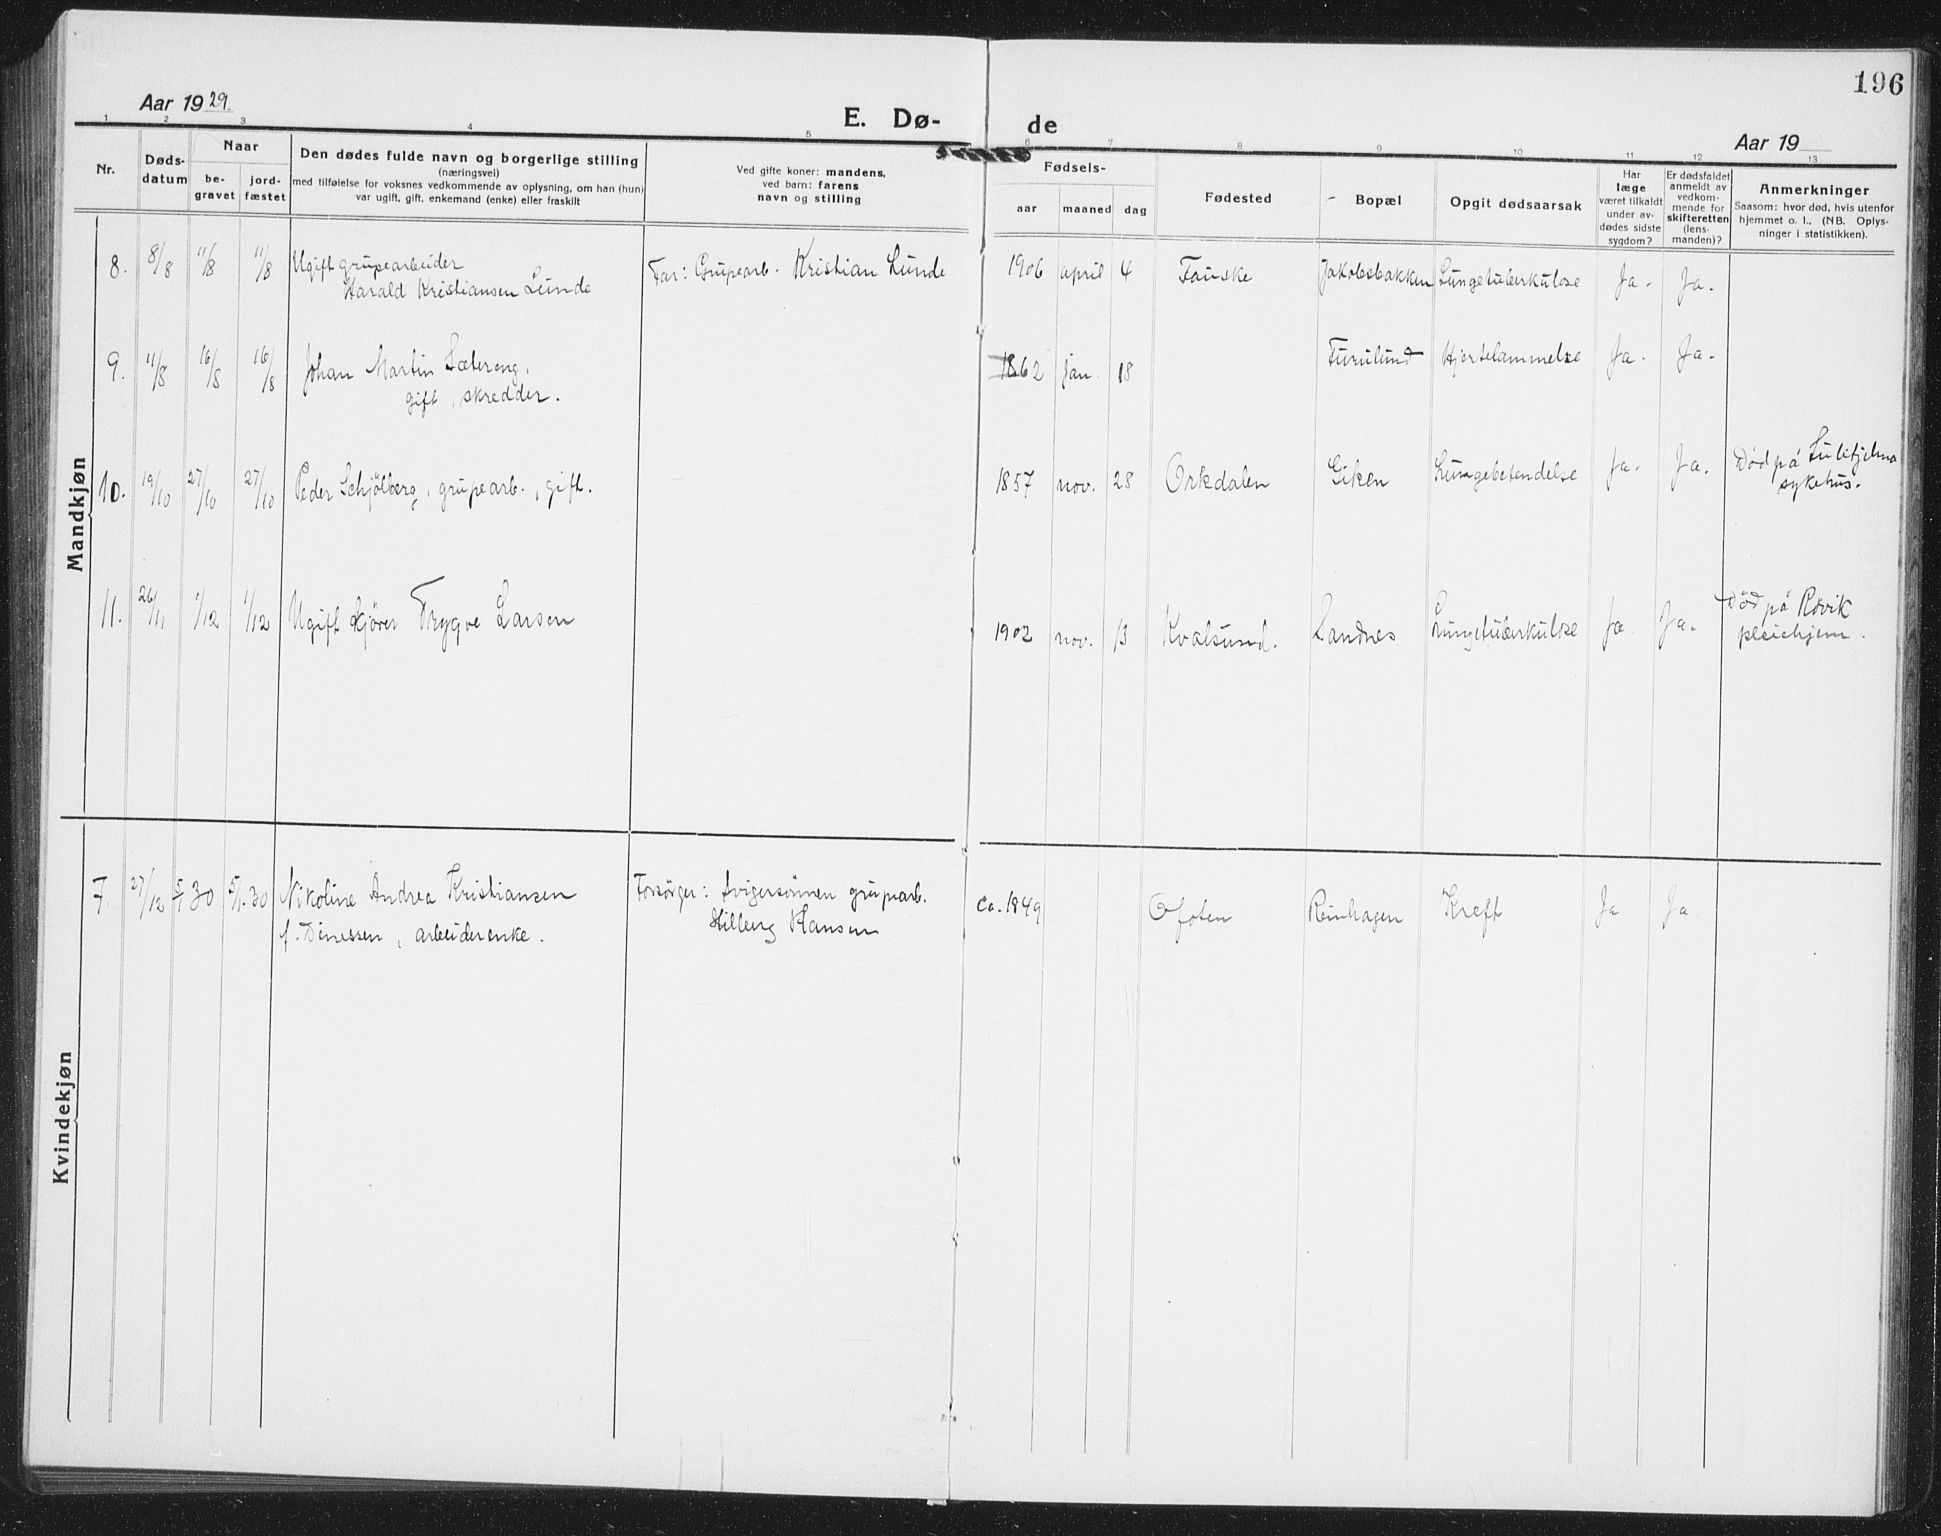 196
Aar 1929.
E. Dø-
de
Aar 19
1 2 3 4 5 6 7 8 9 10 11 12 13
Nr.
Døds-
datum
Naar
be-
gravet
jord-
fæstet
Den dødes fulde navn og borgerlige stilling
(næringsvei)
med tilføielse for voksnes vedkommende av oplysning, om han (hun)
var ugift, gift, enkemand (enke) eller fraskilt
Ved gifte koner: mandens,
ved barn: farens
navn og stilling
Fødsels-
aar
maaned
dag
Fødested
Bopæl
Opgit dødsaarsak
Har
læge
været tilkaldt
under av-
dødes sidste
sygdom?
Er dødsfaldet
anmeldt av
vedkom-
mende for
skifteretten
(lens-
manden)?
Anmerkninger
Saasom: hvor død, hvis utenfor
hjemmet o. l., (NB. Oplys-
ninger i statistikken).
Mandkjøn
8. 8/8 11/8 11/8 Ugift grupearbeider
Harald Kristiansen Lunde
Far: Grupearb. Kristian Lunde
1906 april 4 Fauske Jakobsbakken Lungetuberkulose Ja. Ja.
9. 11/8 16/8 16/8 Johan Martin Sætereng,
gift, skredder.
1862 jan. 18 Furulund Hjertelammelse Ja. Ja.
10. 19/10 27/10 27/10 Peder Schjölberg, grupearb., gift.
1857 nov. 28 Orkdalen Giken Lungebetendelse Ja. Ja. Död på Sulitjelma
sykehus.
11. 26/11 1/12 1/12 Ugift kjörer Trygve Larsen
1902 nov. 13 Kvalsund. Sandnes Lungetuberkulose Ja. Ja. Död på Rövik
pleiehjem.
Kvindekjøn
7. 27/12 5/1 30 5/1. 30 Nikoline Andrea Kristiansen
f. Dinessen, arbeiderenke.
Forsörger: svigersönnen gruparb.
Hilberg Hansen
Ca. 1849 Ofoten Reinhagen Kreft Ja Ja